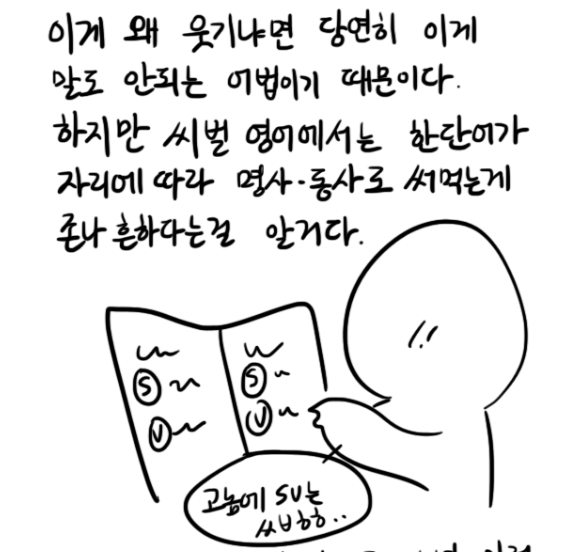 이게 왜 웃기냐면 당연히 이게
말도 안되는 어법이기 때문이다.
하지만 씨벌 영어에서는 한단어가
자리에따라 명사·동사로 써먹는게
존나 흔하다는걸 알거다.
S
V
S
V
고놈에 SV는
씨ㅂㅎㅎ..